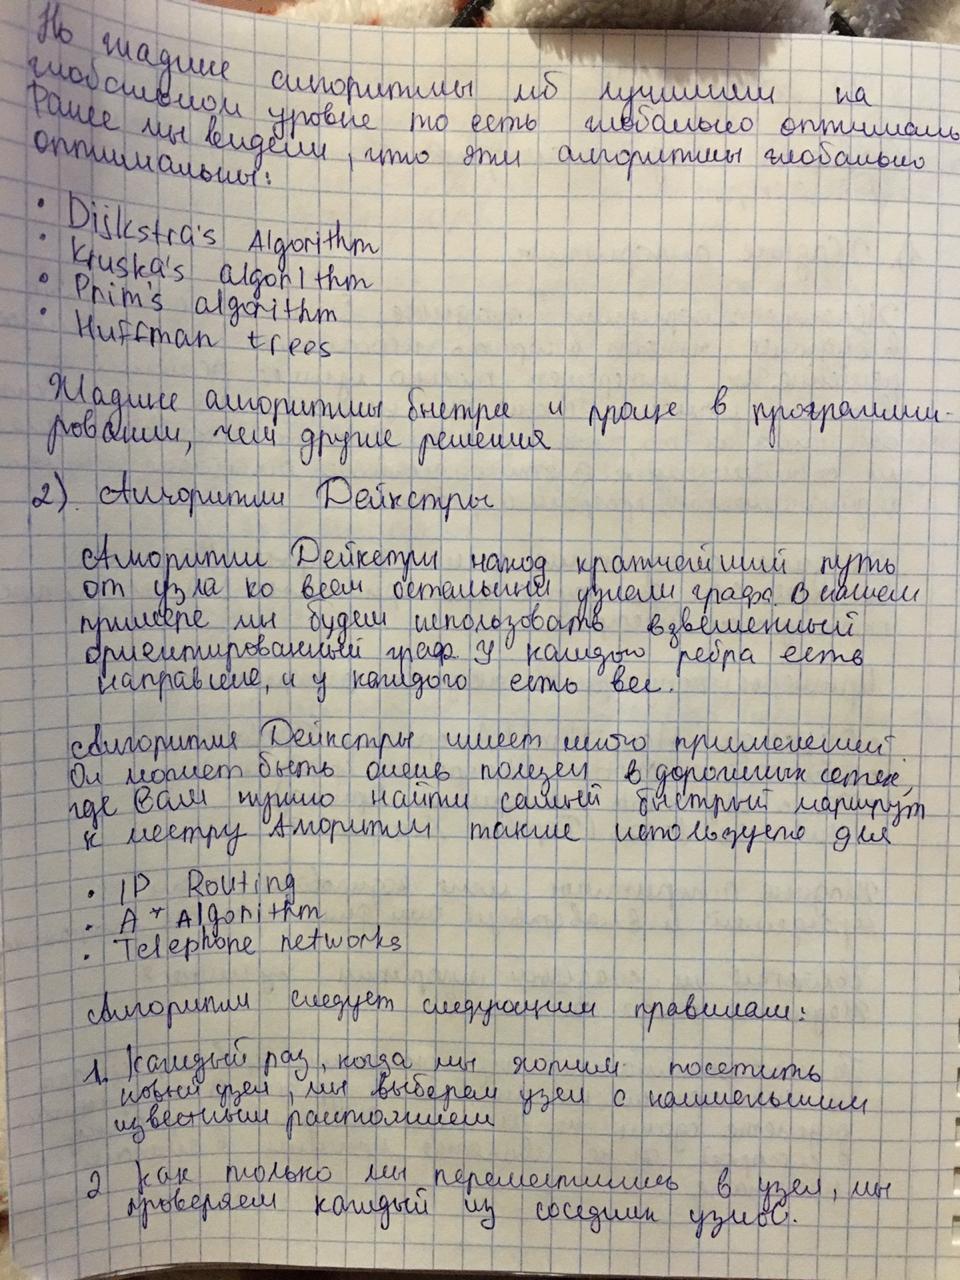 Но жадные алгоритмы мб лучшими на
глобальном уровне то есть глобально оптималь
Ранее мы видели, что эти алгоритмы глобально
оптимальны:
• Dijkstra's Algorithm
• Kruska's algorithm
• Prim's algorithm
• Huffman trees
Жадные алгоритмы быстрее и проще в программи-
ровании, чем другие решения
2). Алгоритм Дейкстры
Алгоритм Дейкстры наход кратчайший путь
от узла ко всем остальным узлам графа. В нашем
примере мы будем использовать взвешенный
ориентированный граф. У каждого ребра есть
направление, и у каждого есть вес.
Алгоритм Дейкстры имеет много применений.
Он может быть очень полезен в дорожных сетях,
где Вам нужно найти самый быстрый маршрут
к Алгоритм также используется для
• IP Routing
• A* Algorithm
• Telephone networks
Алгоритм следует следующим правилам:
1. Каждый раз, когда мы хотим посетить
новый узел, мы выберем узел с наименьшим
известным расстоянием
2 Как только мы переместились в узел, мы
проверяем каждый из соседних узлов.